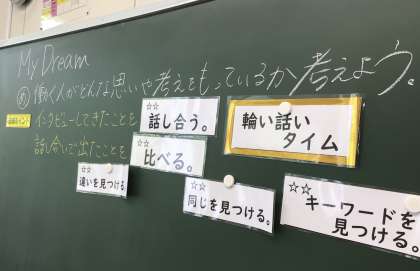 My Dream
め 働く人がどんな思いや考えをもっているか考えよう。
インタビューしてきたことを
☆☆
話し合う。
輪い話い
タイム
話し合いで出たことを
☆☆
比べる。
☆
違いを見つける。
☆☆
同じを見つける。
☆☆
キーワードを
見つける。